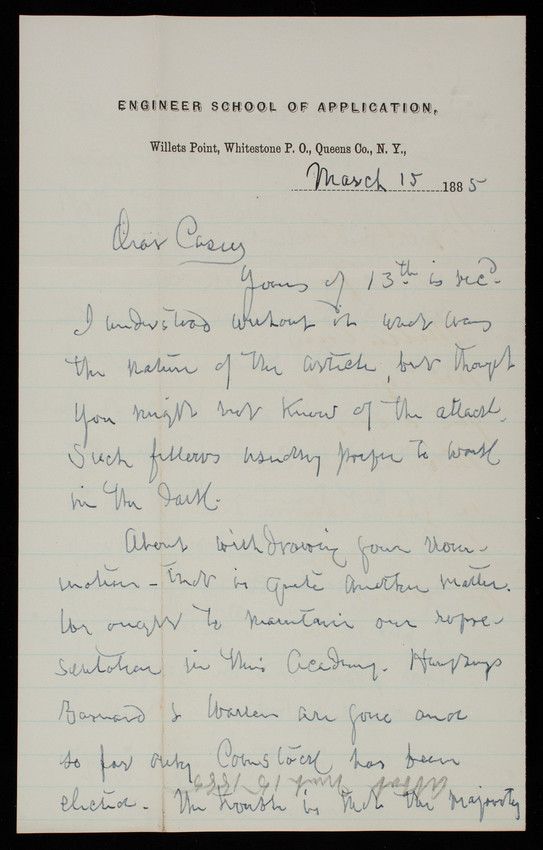 ENGINEER SCHOOL OF APPLICATION,
Willets Point, Whitestone P. O., Queens Co., N. Y.,
March 15 1885
Dear Casey
Yours of 13th is rec'd.
I understood without it what was
the nature of the article, but thought
you might not know of the attack.
Such fellows usually prefer to work
in the dark.
About withdrawing your nom-
ination - that is quite another matter.
We ought to maintain our repre-
sentation in this Academy. Humphreys
Barnard & Warren are gone and
so far only Comstock has been
elected. The trouble is that the majority
Abbot March 15 1885